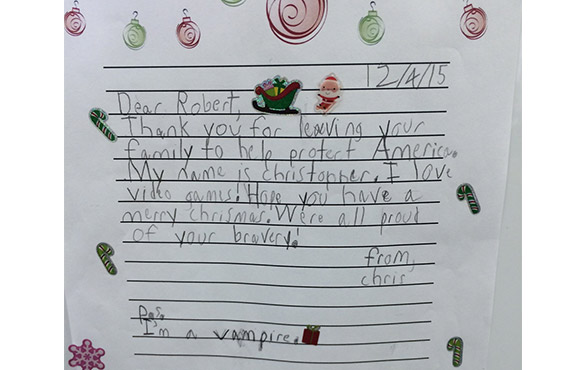 12/4/15
Dear Robert,
Thank you for leaving your
family to help protect America.
My name is christopher. I love
video games! Hope you have a
merry chrismas. Were all proud
of your bravery!
from,
chris
P.s.
I'm a vampire.